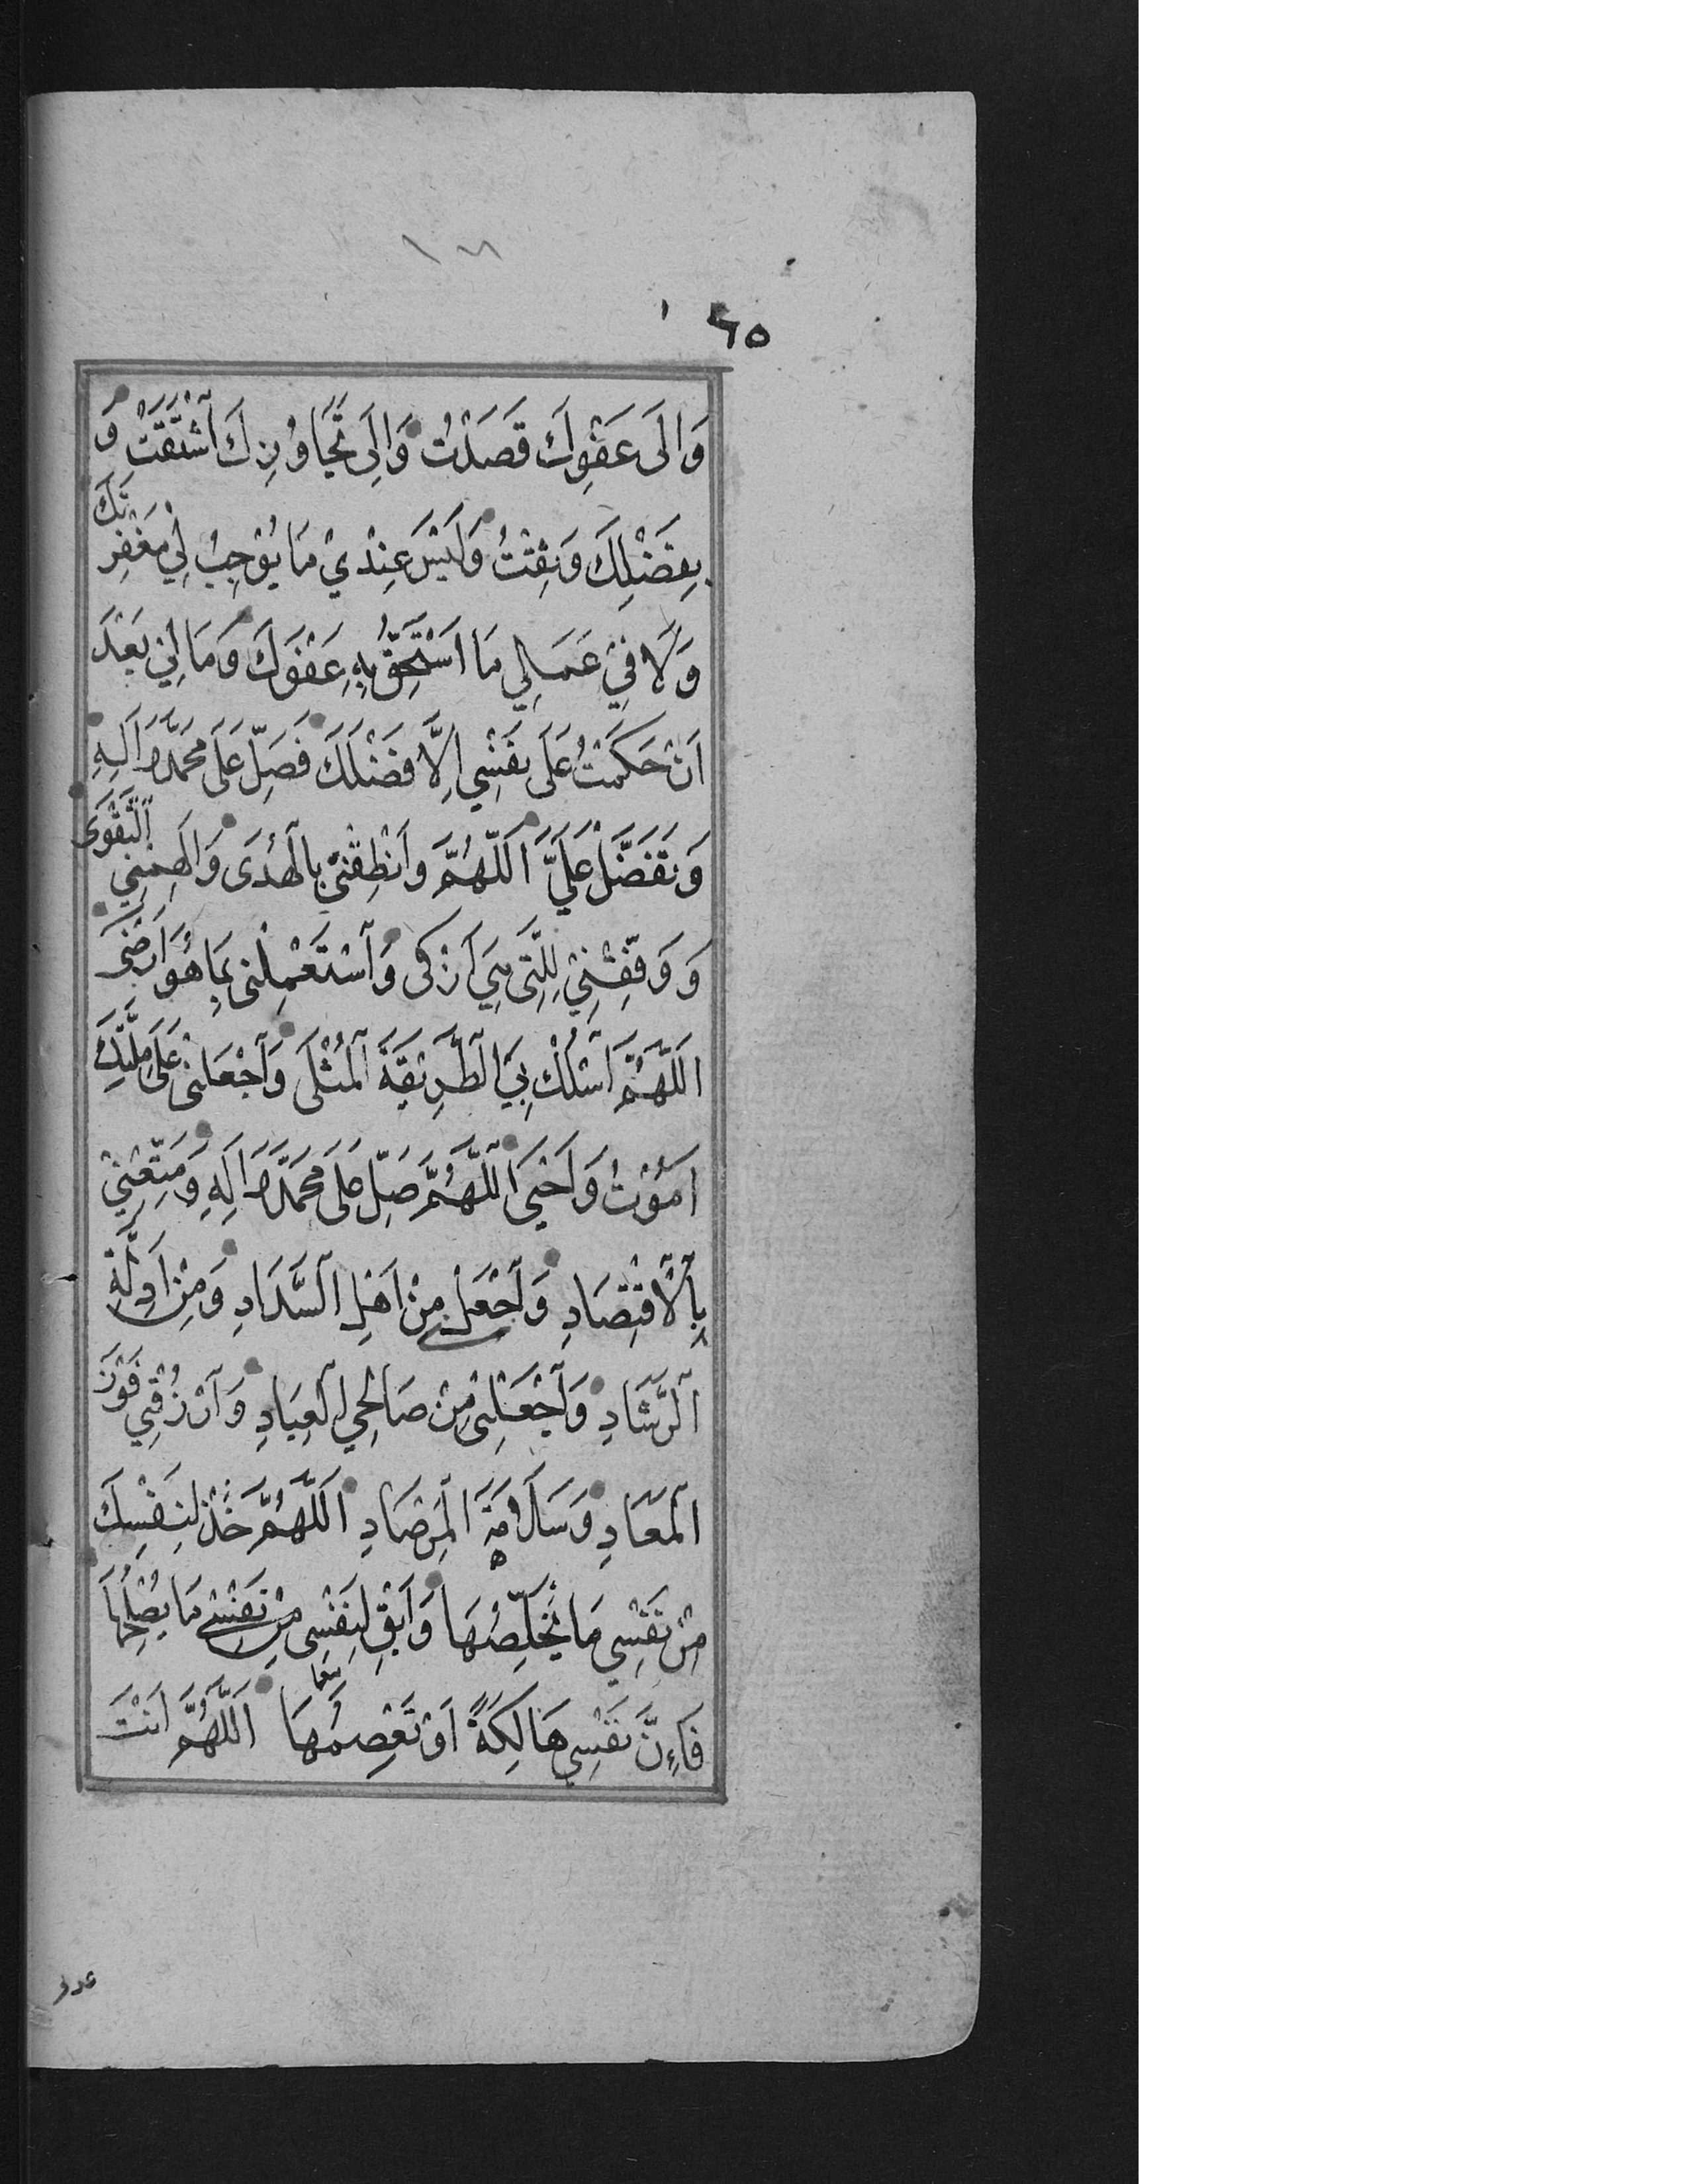 ٦٥
وَالَى عَفْوِكَ قَصَدْتُ وَالَِى تَجَاوُزِكَ ٱشْتَقْتُ وَ
بِفَضْلِكَ وَثِقْتُ وَلَيْسَ عِنْدِيْ مَا يُوْجِبُ لِيْ مَغْفِرَتَكَ
وَلَا فِيْ عَمَلِي مَا اَسْتَحِقُّ بِهِ عَفْوَكَ وَمَا لِيْ بَعْدَ
اَنْ حَكَمْتُ عَلَى نَفْسِي اِلَّا فَضْلُكَ فَصَلِّ عَلَى مُحَمَّدٍ وَآلِهِ
وَتَفَضَّلْ عَلَيَّ اَللّٰهُمَّ وَاَنْطِقْنِي بِالْهُدَى وَاَلْهِمْنِي ٱلتَّقْوَى
وَوَفِّقْنِيْ لِلَّتِي هِيَ اَزْكَى وَٱسْتَعْمِلْنِي بِمَا هُوَ اَرْضَى
اَللّٰهُمَّ ٱسْلُكْ بِيَ ٱلطَّرِيْقَةَ ٱلْمُثْلَى وَٱجْعَلْنِي عَلَى مِلَّتِكَ
اَمُوْتُ وَاَحْيَى اَللّٰهُمَّ صَلِّ عَلَى مُحَمَّدٍ وَآلِهِ وَمَتِّعْنِيْ
بِٱلْاِقْتِصَادِ وَٱجْعَلْنِي مِنْ اَهْلِ ٱلسَّدَادِ وَمِنْ اَدِلَّةِ
ٱلرَّشَادِ وَٱجْعَلْنِي مِنْ صَالِحِي ٱلْعِبَادِ وَٱرْزُقْنِي فَوْزَ
ٱلْمَعَادِ وَسَلَامَةَ ٱلْمِرْصَادِ اَللّٰهُمَّ خُذْ لِنَفْسِكَ
مِنْ نَفْسِي مَا يُخَلِّصُهَا وَاَبْقِ لِنَفْسِي مِنْ نَفْسِي مَا يُصْلِحُهَا
فَاِنَّ نَفْسِي هَالِكَةٌ اَوْ تَعْصِمُهَا اَللّٰهُمَّ اَنْتَ